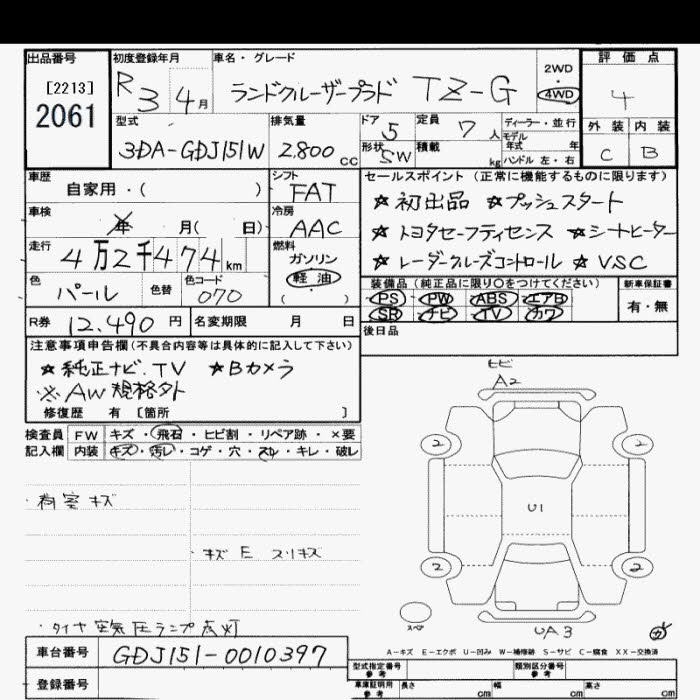 出品番号 初度登録年月 車名・グレード 評価点
[2213] 2061 R3 4月 ランドクルーザープラド TZ-G 2WD 4WD 4
型式 排気量 ドア 定員 ディーラー・並行 外装 内装
3DA-GDJ151W 2,800cc 5 7人 モデル年式 年 C B
形状 SW 積載 kg ハンドル 左・右
車歴 シフト セールスポイント (正常に機能するものに限ります)
自家用・( ) FAT ☆初出品 ☆プッシュスタート
車検 冷房
年 月( 日) AAC ☆トヨタセーフティセンス ☆シートヒーター
走行 燃料
4万2千474km ガソリン ☆レーダークルーズコントロール ☆VSC
軽油
( )
色 色替 色コード 装備品 (純正品に限り○をつけてください) 新車保証書
パール 070 PS PW ABS エアB 有・無
SR ナビ TV カワ
R券 12,490円 名変期限 月 日 後日品
注意事項申告欄(不具合内容等は具体的に記入して下さい)
☆純正ナビ.TV ☆Bカメラ
※AW規格外
修復歴 有 [箇所 ]
検査員 FW キズ・飛石・ヒビ割・リペア跡・×要
記入欄 内装 キズ・汚レ・コゲ・穴・スレ・キレ・破レ
ヒビ
A2
2 2
・荷室キズ
U1
・キズ E スリキズ
2 2
スペア
・タイヤ空気圧ランプ点灯
UA3 カ
A-キズ E-エクボ U-凹み W-補修跡 S-サビ C-腐食 XX-交換済
車台番号 GDJ151-0010397
型式指定番号 参考 類別区分番号 参考
登録番号
車庫証明用 参考 長さ cm 幅 cm 高さ cm